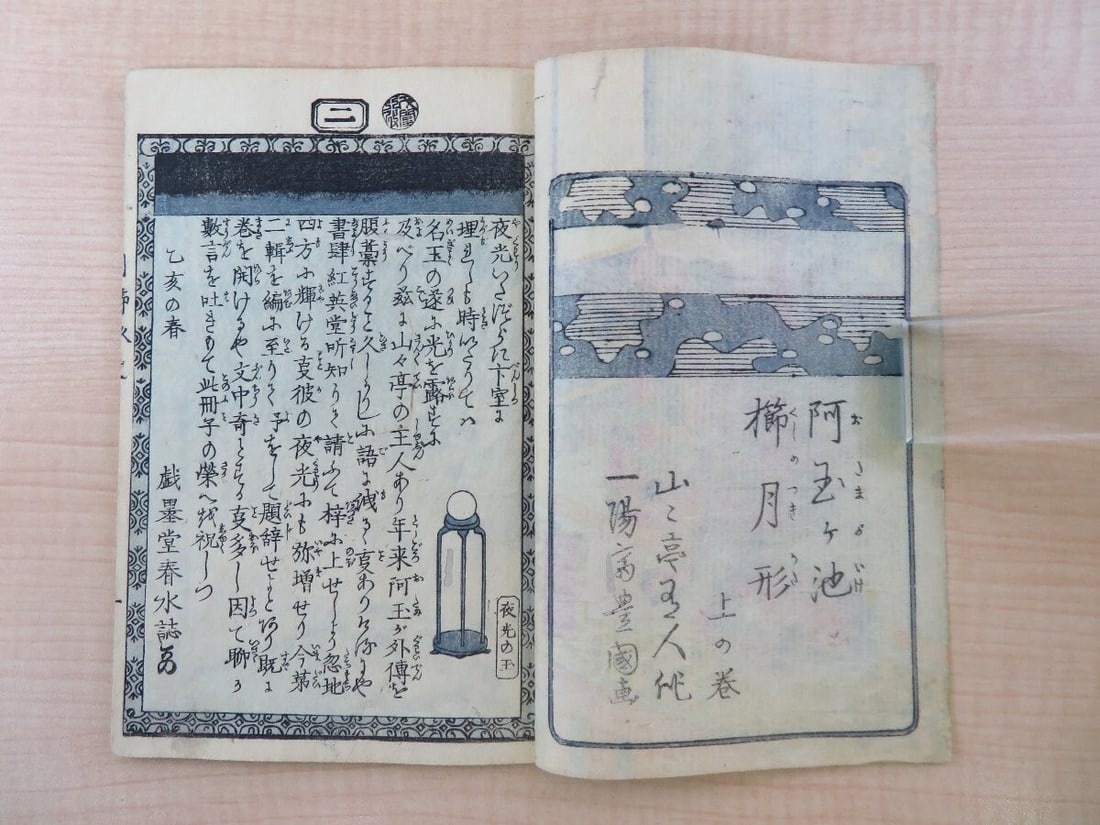 阿玉ヶ池
櫛月形
上の巻
山々亭有人作
一陽斎豊国画
二
夜光の玉
夜光いたづらに下室に
埋れしも時いたりては
名玉の遂に光を露すに
及べり茲に山々亭の主人あり年来阿玉が外傳を
書肆紅英堂聞知りて請ふて梓に上せしより忽地
四方に輝ける夏彼の夜光にも弥増せり今第
二輯を編に至りて予をして題辞せよとあり既に
巻を開けるや文中奇とする夏多し因て聊か
數言を吐きもて此冊子の榮へを祝しつ
乙亥の春
戯墨堂春水誌